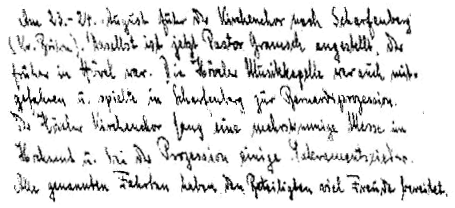 Am 23.-24. August fuhr der Kirchenchor nach Scharfenberg
(Kr. Brilon). Daselbst ist jetzt Pastor Grausch angestellt. Der
früher in Hövel war. Die Höveler Musikkapelle war auch mit-
gefahren u. spielte in Scharfenberg zur Bernardsprozession.
Der Höveler Kirchenchor sang eine mehrstimmige Messe im
Hochamt u. bei der Prozession einige Sakramentslieder.
Alle genannten Fahrten haben den Beteiligten viel Freude bereitet.